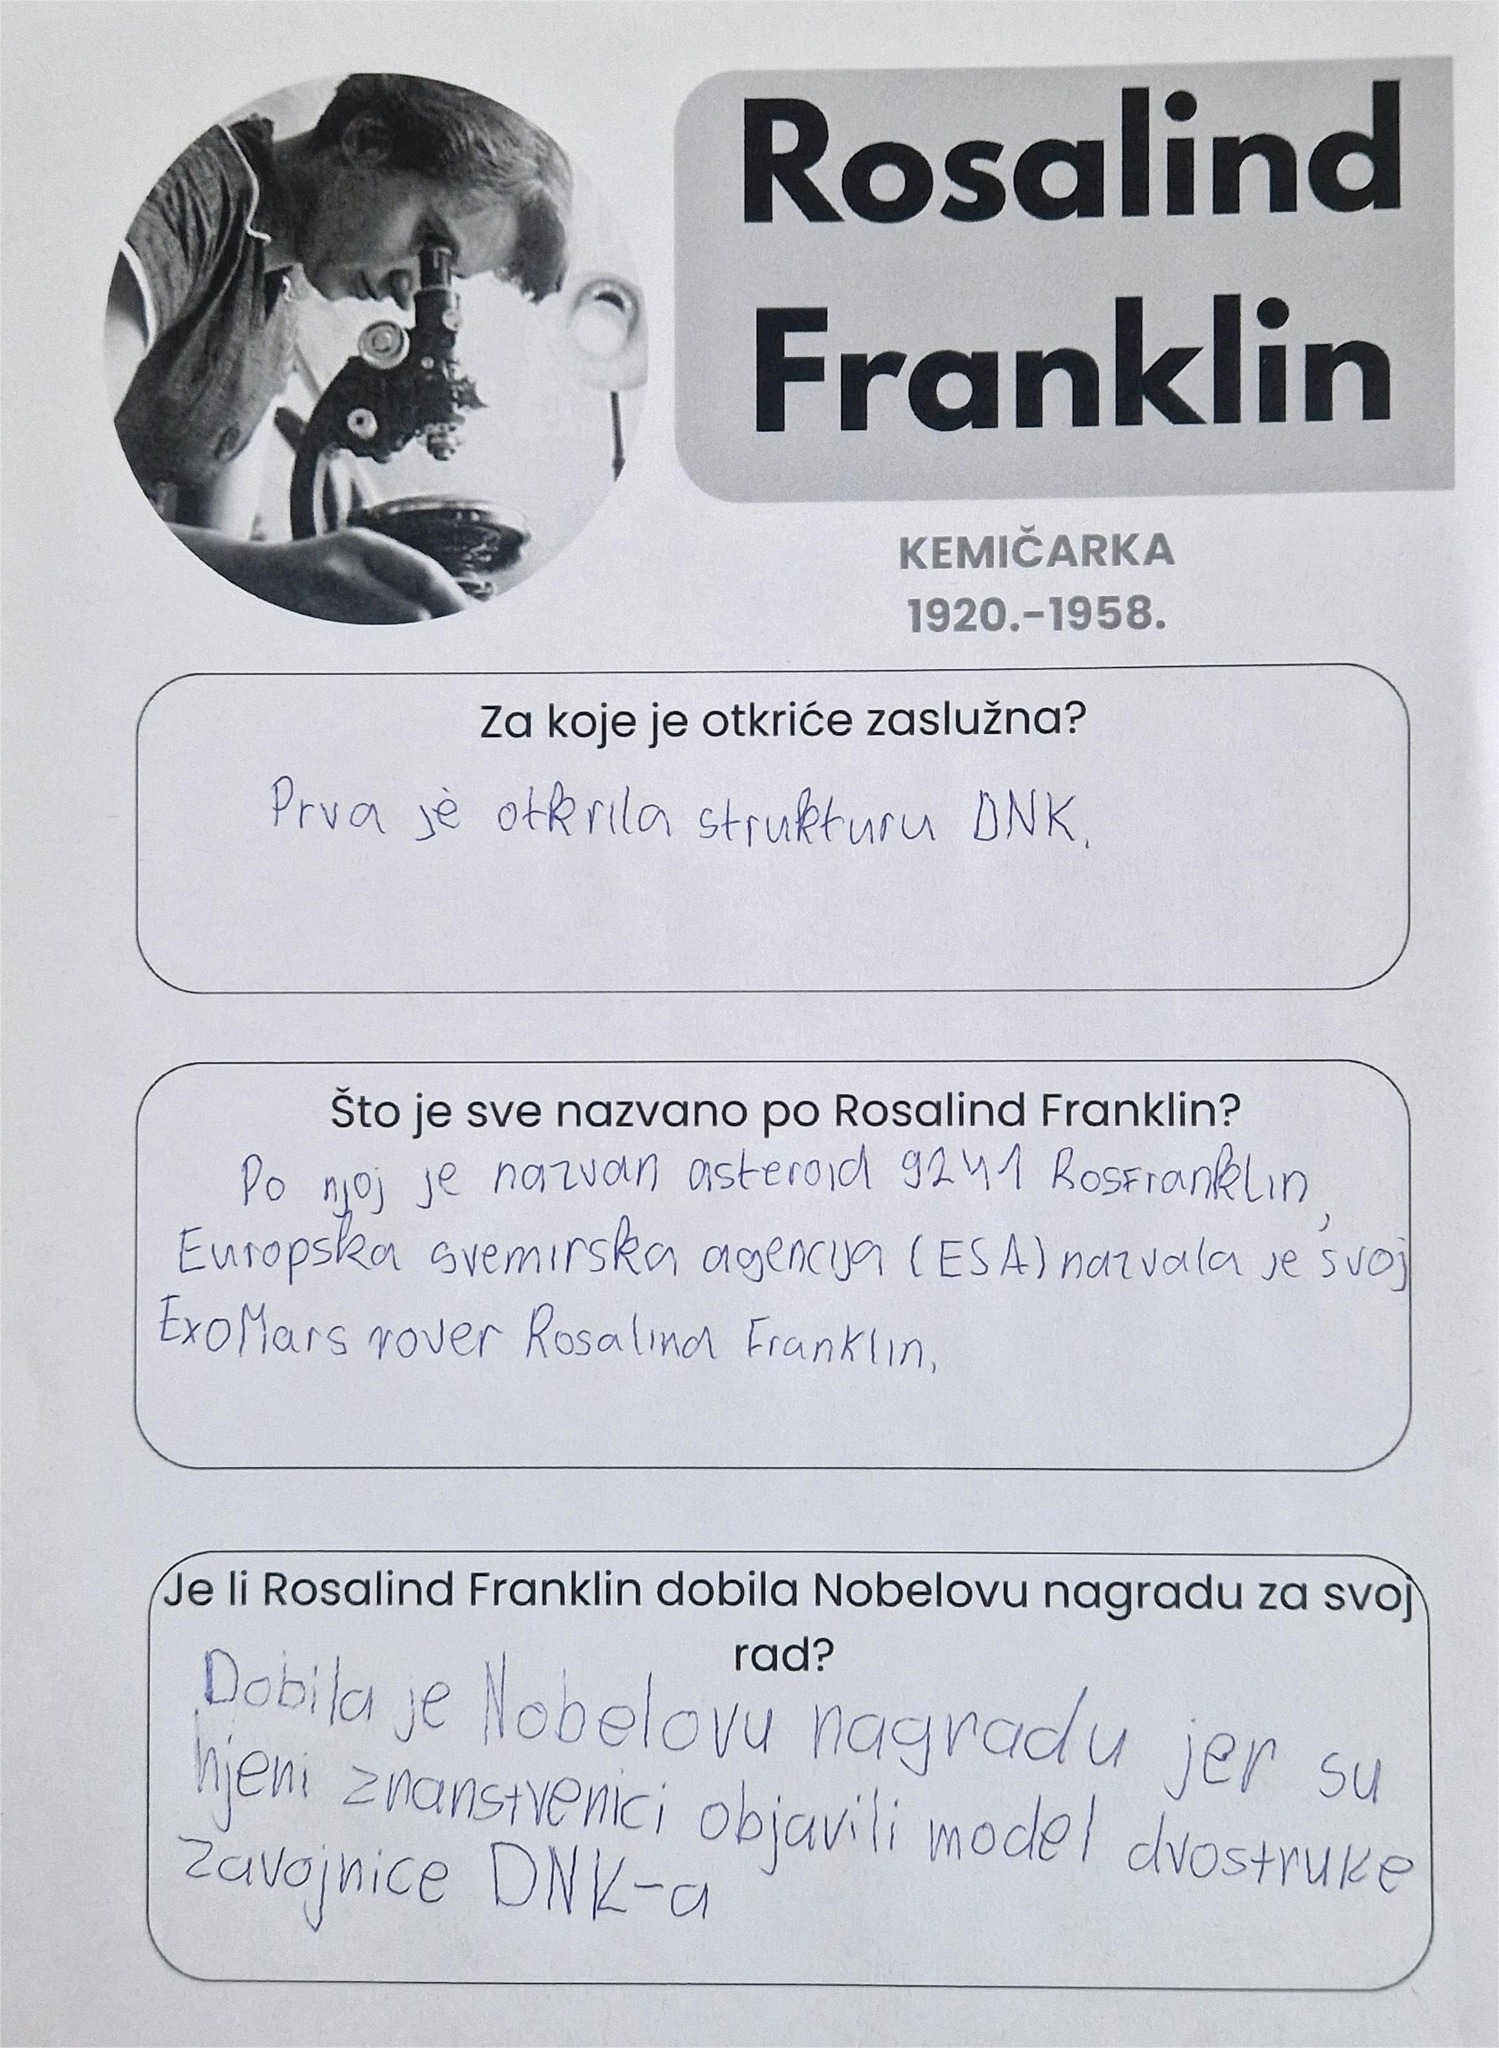 Rosalind
Franklin
KEMIČARKA
1920.-1958.
Za koje je otkriće zaslužna?
Prva je otkrila strukturu DNK.
Što je sve nazvano po Rosalind Franklin?
Po njoj je nazvan asteroid 9241 RosFranklin,
Europska svemirska agencija (ESA) nazvala je svoj
ExoMars rover Rosalind Franklin.
Je li Rosalind Franklin dobila Nobelovu nagradu za svoj
rad?
Dobila je Nobelovu nagradu jer su
njeni znanstvenici objavili model dvostruke
zavojnice DNK-a